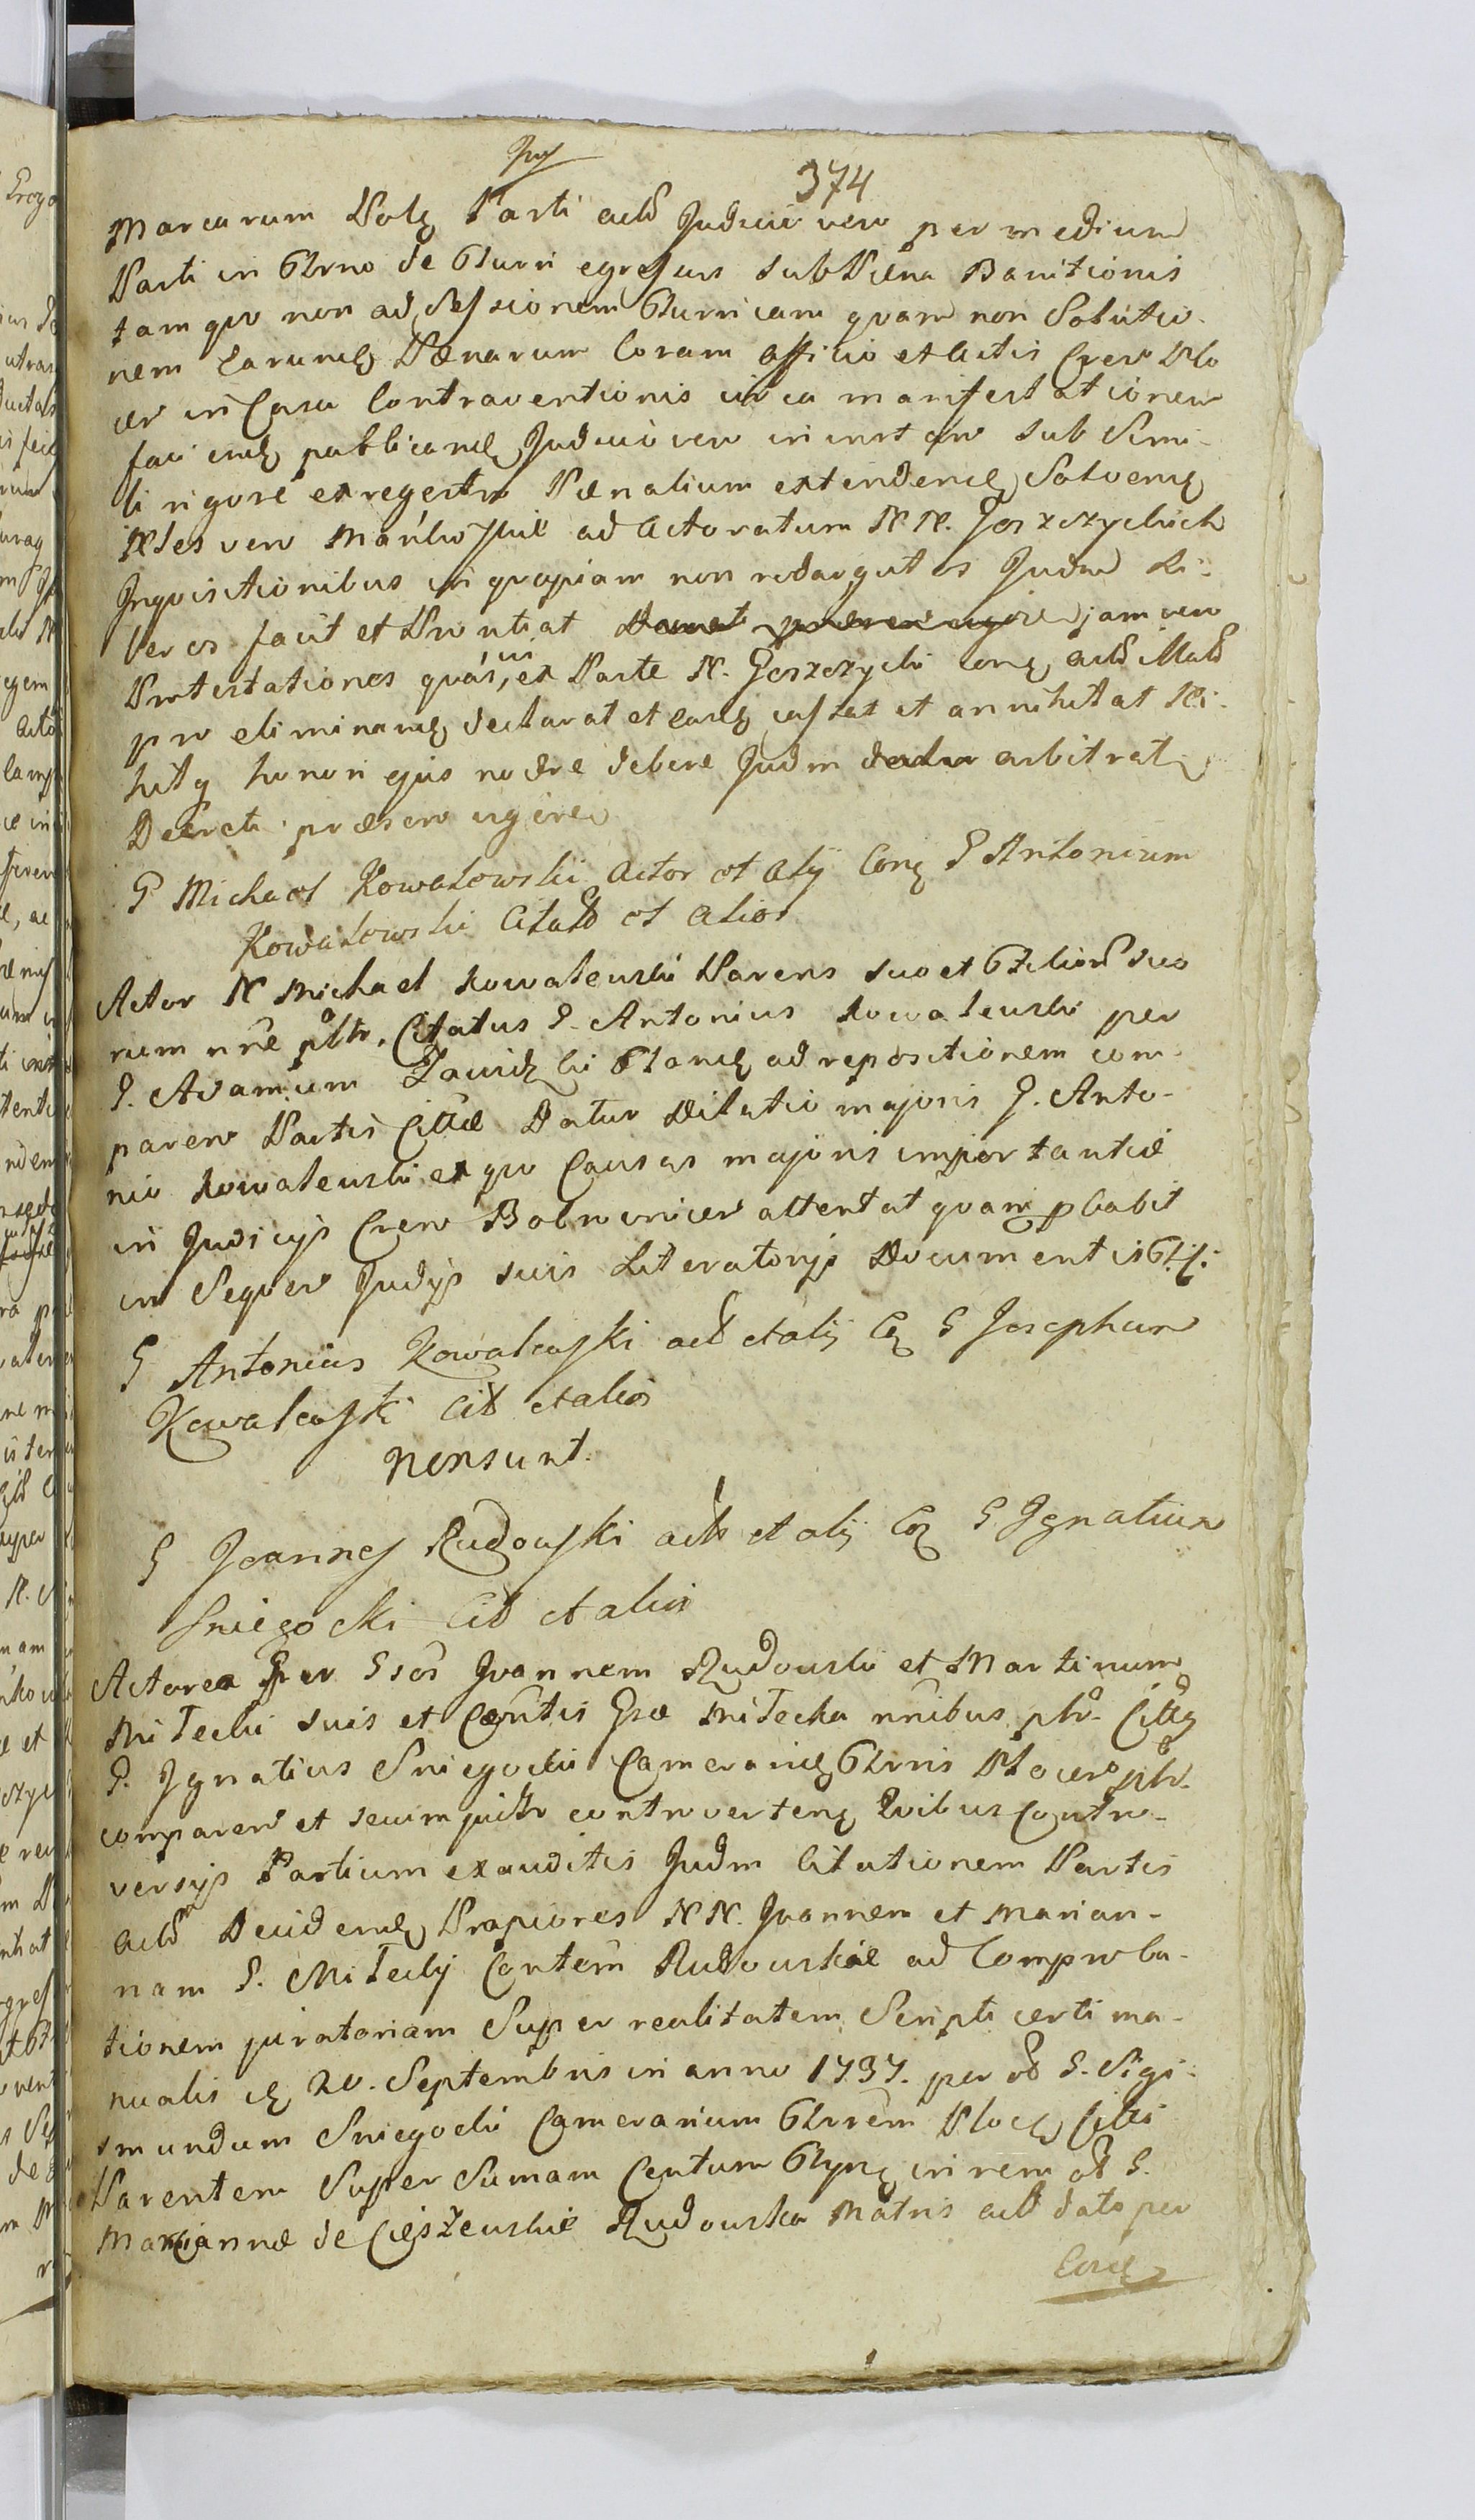 374
Marcarum Polq Parti actb Judicio vero per medium
Parti in Gtrno de Turri egresurs sub Pæna Banitionis
tam qvo non ad Sessionem Turricam qvam non Solutio-
nem earumq Pænarum Coram Officio et Actis Cren Plo
cen in Casu Contraventionis circa manifestationem
faciendq publicandq Judicio vero in instan sub Simi-
li rigore ex regestro Pænalium extendendq Solvendq
Ntes vero ad Actoratum NN. Goszczyckich
Inqvisitionibus in qvopiam non redargutos Judm Li-
beros facit et Prontiat jam vero
Protestationes qvasvis, ex Parte N. Goszczycki Conq actb illatb
pro eliminandq declarat et easdq cassat et annihilat Ni-
hilq honori ejus nocere debere Judm arbitrat
Decreti præsen vigore
G Michael Kowalowski Actor et Alij Conq G Antonium
Kowalowski Citatb et Alios
Actor N Michael Kowalewski Parens suo et Gtliorb suo
rum nñe pltr. Citatus G. Antonius Kowalewski per
G. Adamum Zawidzki Plandq ad repositionem com-
paren Partis Cittæ Datur Dilatio majoris G. Anto-
nio Kowalewski ex qvo Causas majoris importantiæ
in Judicijs Cren Bobrovnicen attentat qvam pbabit
in Seqven Judijs suis Literatorijs Documentis
G Antonius Kowalewski actb et alij Cq G Josephum
Kowalewski Citb et alios
non sunt.
G Joannes Rudowski actb et alij Cq G Ignatium
Sniegocki Citb et alios
Actorea Pr per Gsos Joannem Rudowski et Martinum
Miłecki suis et Contis Gsæ Miłecka nñibus pltr. Cittq
G. Ignatius Sniegocki Camerandq Gtrris Plocen pltr.
comparen et secum juditr controvertenq Qvibus Contro-
versijs Partium exauditis Judm Citationem Partis
actb Deciderndq Propiores NN. Joannem et Marian-
nam G. Miłecky Contem Rudowskie ad Comproba-
tionem juratoriam Super realitatem Scripti certi ma-
nualis dq 20. Septembris in anno 1737. per ob G. Sigi-
smundum Sniegocki Camerarium Gtrrem Plocq Citti
Parentem Super Sumam Centum Gtypq in rem ob G.
Mariannæ de Cięszewskie Rudowska Matris actb dato per
Eord